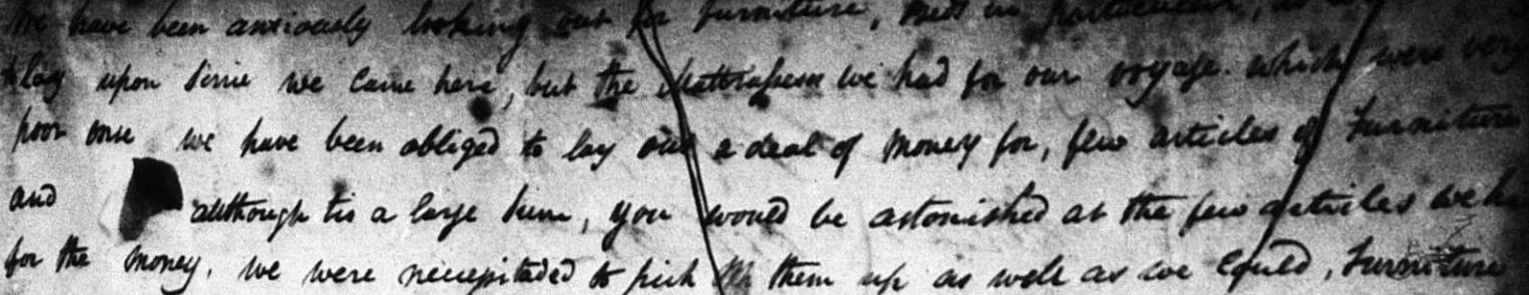 We have been anxiously looking out for furniture, Beds in particular,
to lay upon since we came here, but the Mattrasses we had for our voyage. which were very
poor ones we have been obliged to lay out a deal of money for, few articles of Furniture
and although tis a large sum, you would be astonished at the few articles we
for the money, we were necessitaded to pick them up as well as we could, Furniture